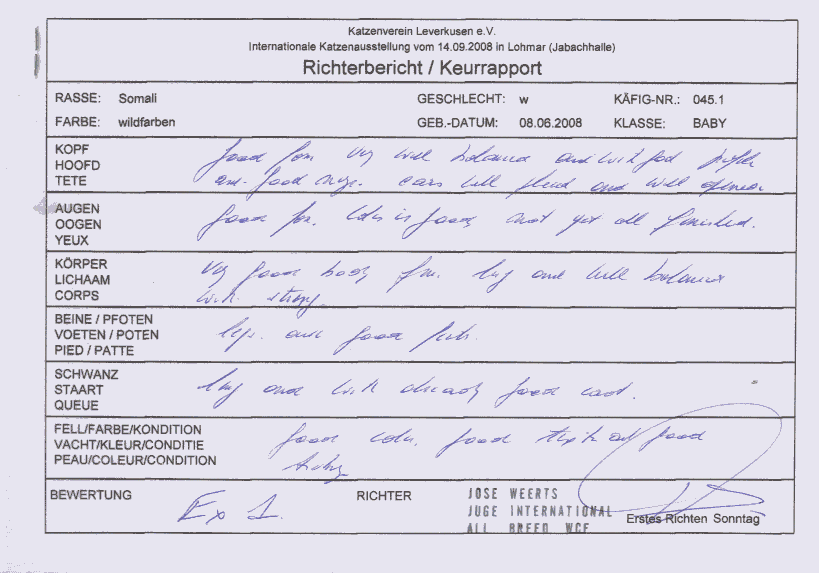 Katzenverein Leverkusen e.V.
Internationale Katzenausstellung vom 14.09.2008 in Lohmar (Jabachhalle)
Richterbericht / Keurrapport
RASSE: Somali GESCHLECHT: w KÄFIG-NR.: 045.1
FARBE: wildfarben GEB.-DATUM: 08.06.2008 KLASSE: BABY
KOPF
HOOFD
TETE
good very well balance and with good
and good ears well and well
AUGEN
OOGEN
YEUX
good is good not yet all finished.
KÖRPER
LICHAAM
CORPS
Very good body long and well balance
with strong
BEINE / PFOTEN
VOETEN / POTEN
PIED / PATTE
legs. and good
SCHWANZ
STAART
QUEUE
long and with already good
FELL/FARBE/KONDITION
VACHT/KLEUR/CONDITIE
PEAU/COLEUR/CONDITION
good good good
BEWERTUNG Ex 1. RICHTER
JOSE WEERTS
JUGE INTERNATIONAL
ALL BREED WCF
Erstes Richten Sonntag